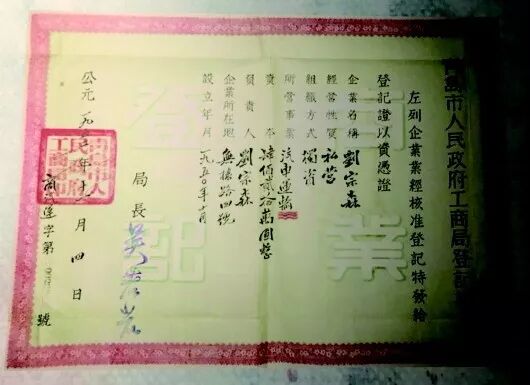 市人民政府工商局登記
左列企業業經核准登記特發給
登記證以資憑證
企業名稱 劉宗森
經營性質 私營
組織方式 獨資
所營事業 汽車運輸
資本 肆佰貳拾萬圓整
負責人 劉宗森
企業所在地 無棣路四號
設立年月 一九五〇年十月
局長
公元一九五 年十 月四日
商 字第 號
商業登記